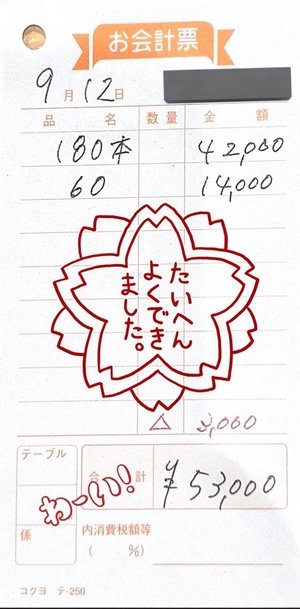 お会計票
9月12日
品名 数量 金額
180本 42,000
60 14,000
たいへん
よくでき
ました。
△ 3,000
テーブル
合計 ¥53,000
わーい!
係
内消費税額等
( %)
コクヨ テ-250